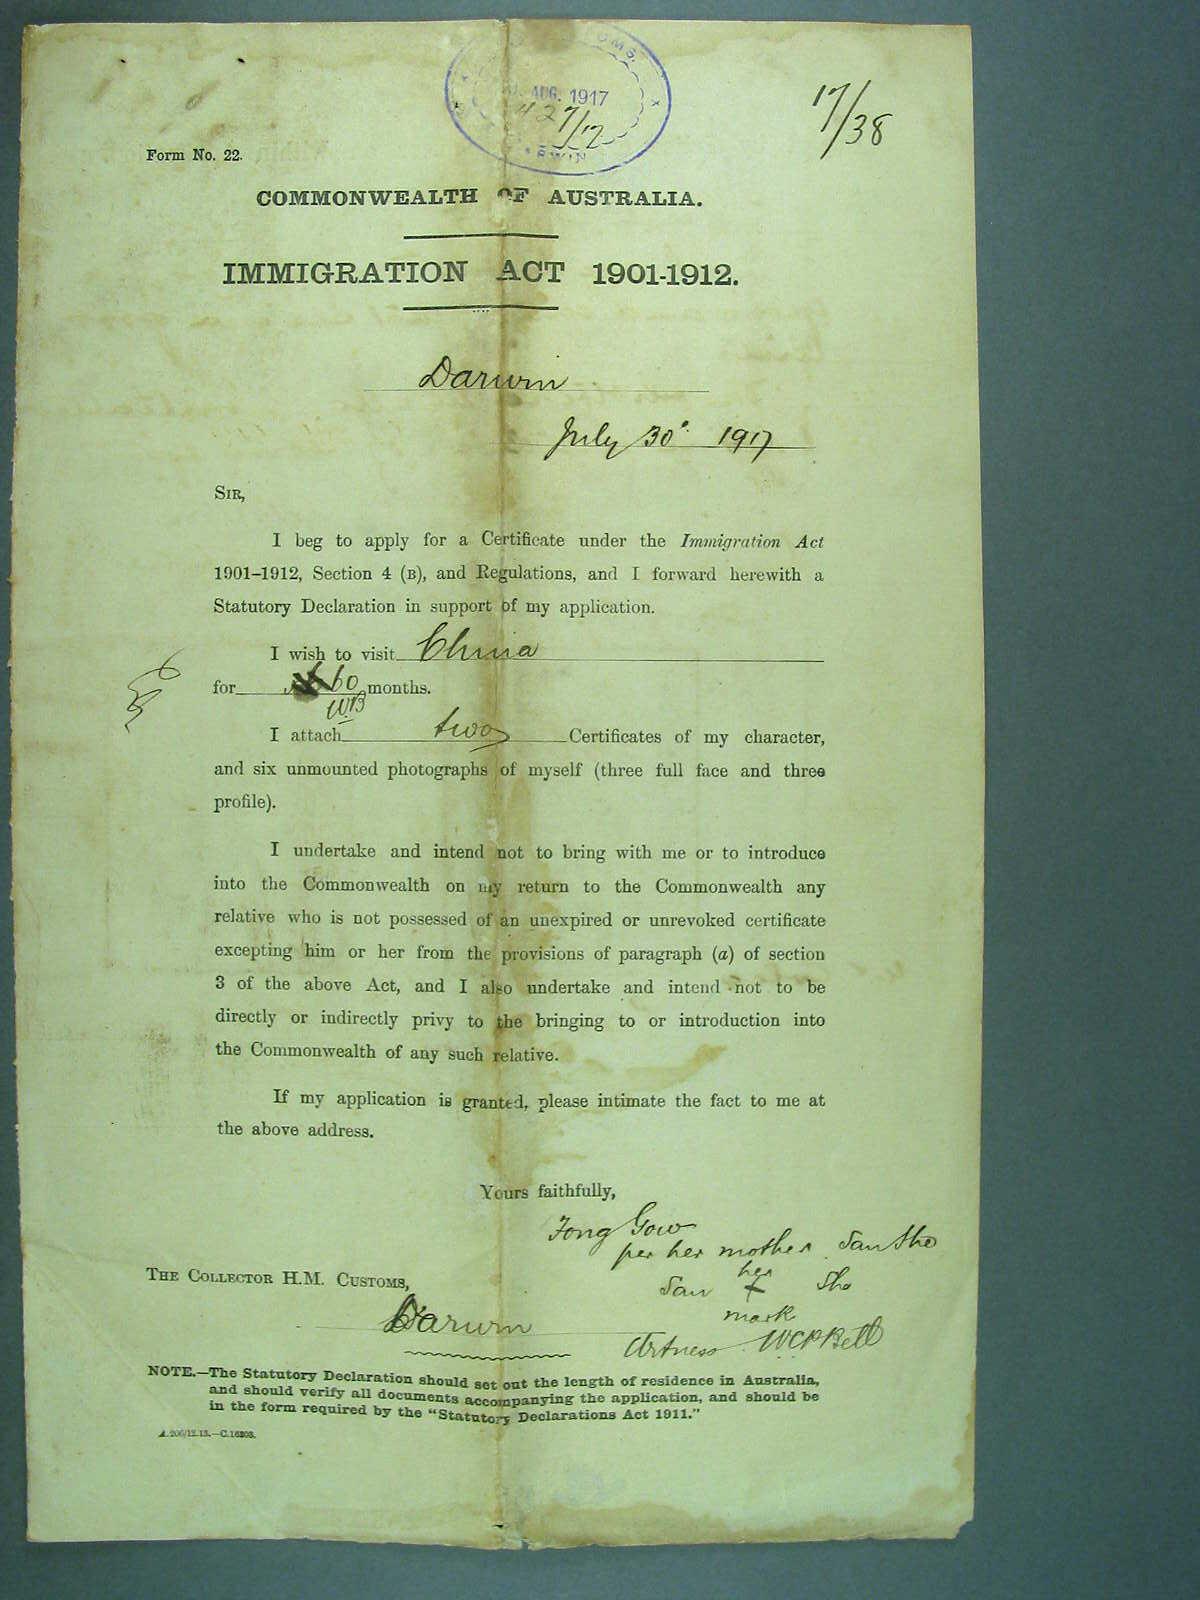 AUG. 1917
427/12
17/38
Form No. 22.
COMMONWEALTH OF AUSTRALIA.
IMMIGRATION ACT 1901-1912.
Darwin
July 30 1917
SIR,
I beg to apply for a Certificate under the Immigration Act
1901-1912, Section 4 (B), and Regulations, and I forward herewith a
Statutory Declaration in support of my application.
I wish to visit China
for 60 months.
WB
I attach two Certificates of my character,
and six unmounted photographs of myself (three full face and three
profile).
I undertake and intend not to bring with me or to introduce
into the Commonwealth on my return to the Commonwealth any
relative who is not possessed of an unexpired or unrevoked certificate
excepting him or her from the provisions of paragraph (a) of section
3 of the above Act, and I also undertake and intend not to be
directly or indirectly privy to the bringing to or introduction into
the Commonwealth of any such relative.
If my application is granted, please intimate the fact to me at
the above address.
Yours faithfully,
Fong Gow
per her mother San She
her
San + She
mark
THE COLLECTOR H.M. CUSTOMS,
Darwin
Witness WCP Bell
NOTE.—The Statutory Declaration should set out the length of residence in Australia,
and should verify all documents accompanying the application, and should be
in the form required by the "Statutory Declarations Act 1911."
A.206/12.13.—C.16208.